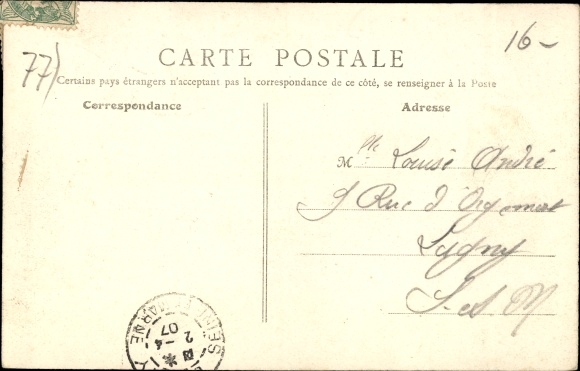 16-
77)
CARTE POSTALE
Certains pays étrangers n'acceptant pas la correspondance de ce côté, se renseigner à la Poste
Correspondance
Adresse
Mlle Louise André
9 Rue d'Orgemont
Lagny
S-et M
SEINE ET MARNE
2 -4
07